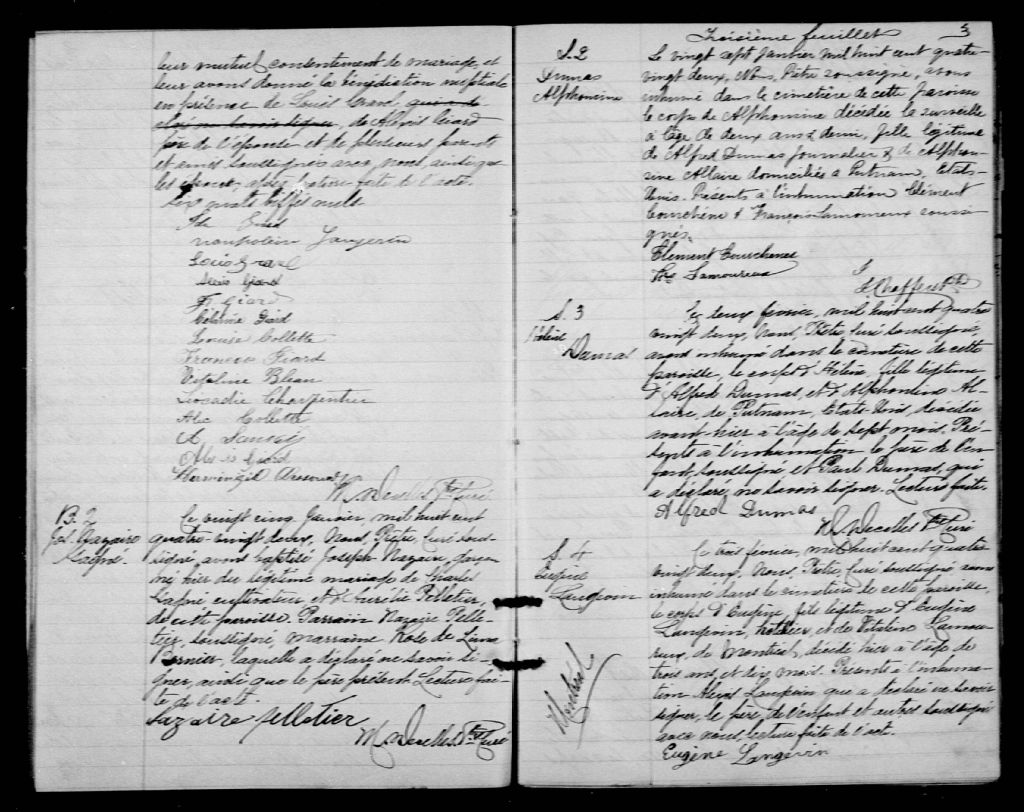 leur mutuel consentement de mariage, et
leur avons donné la bénédiction nuptiale
en présence de Louis Girard
de Alexis Giard
père de l'épouse et de plusieurs parents
et amis soussignés avec nous ainsi que
les époux, après lecture faite de l'acte.
quatre biffés nuls
napoléon Langevin
Louis
Alexis Giard
F Giard
Célérine Giard
Louise Collette
Vitaline Bleau
Leocadie Charpentier
Alec Collette
Alexis Giard
M. Decelles Ptre Curé
B. 2
Jos. Nazaire
Gagné.
Le vingt cinq Janvier, mil huit cent
quatre vingt deux, Nous, Prêtre, Curé sous-
signé, avons baptisé Joseph Nazaire, garçon
né hier du légitime mariage de Charles
Gagné cultivateur et d'Aurélie Pelletier,
de cette paroisse. Parrain Nazaire Pelle-
tier, soussigné, marraine Rose de Lima
Bernier, laquelle a déclaré ne savoir si-
gner, ainsi que le père présent. Lecture fai-
te de l'acte.
Nazaire Pelletier
M. Decelles Ptre Curé
Troisième feuillet 3
S. 2
Dumas
Alphonsine
Le vingt sept Janvier mil huit cent quatre-
vingt deux, Nous, Prêtre soussigné, avons
inhumé dans le cimetière de cette paroisse
le corps de Alphonsine décédée la surveille
à l'âge de deux ans & demi, fille légitime
de Alfred Dumas journalier & de Alphon-
sine Allaire domiciliés à Putnam, Etats-
Unis. Présents à l'inhumation Clément
Courchêne & François Lamoureux soussi-
gnés.
Clement Courchene
Frs Lamoureux
S. 3
Hélèise
Dumas
Le deux février, mil huit cent quatre
vingt deux, Nous, Prêtre Curé soussigné,
avons inhumé dans le cimetière de cette
paroisse, le corps d' fille légitime
d'Alfred Dumas, et d'Alphonsine Al-
laire, de Putnam, Etats-Unis, décédée
avant-hier à l'âge de sept mois. Pré-
sents à l'inhumation le père de l'en-
fant soussigné et Paul Dumas, qui
a déclaré ne savoir signer. Lecture faite.
Alfred Dumas
M. Decelles Ptre Curé
S. 4
Eugène
Langevin
Montréal
Le trois février, mil huit cent quatre
vingt deux, Nous, Prêtre Curé soussigné avons
inhumé dans le cimetière de cette paroisse,
le corps d'Eugène, fils légitime d'Eugène
Langevin, hôtelier, et de Vitaline Lamou-
reux, de Montréal, décédé hier à l'âge de
trois ans, et dix mois. Présents à l'inhuma-
tion Alexis Langevin qui a déclaré ne savoir
signer, le père de l'enfant et autres soussignés
avec nous, lecture faite de l'acte.
Eugène Langevin